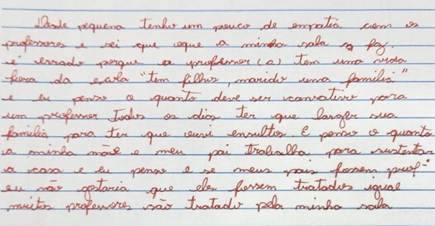 Desde pequena tenho um pouco de empatia com os
professores e sei que oque a minha sala faz
é errado porque o professor (a) tem uma vida
fora da escola "tem filhos, marido uma família"
e eu penso o quanto deve ser cansativo para
um professor Todos os dias ter que largar sua
família para ter que ouvi ensultos. E penso o quanto
a minha mãe e meu pai trabalha para sustentar
a casa e eu penso e se meus pais fossem prof."
eu não gostaria que eles fossem tratados igual
muitos professores são tratado pela minha sala